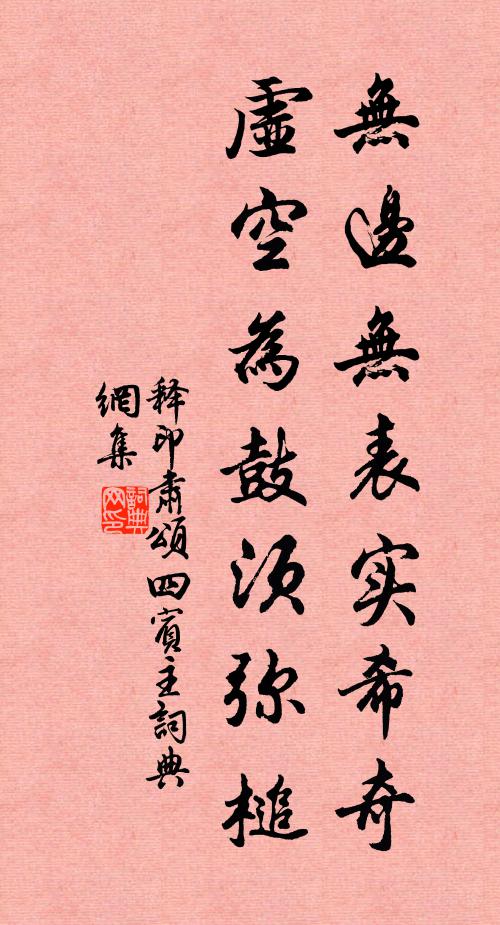 無邊無表实希奇
虛空為鼓须弥槌
释印肅頌四賓主詞典
網集
詞典
网印